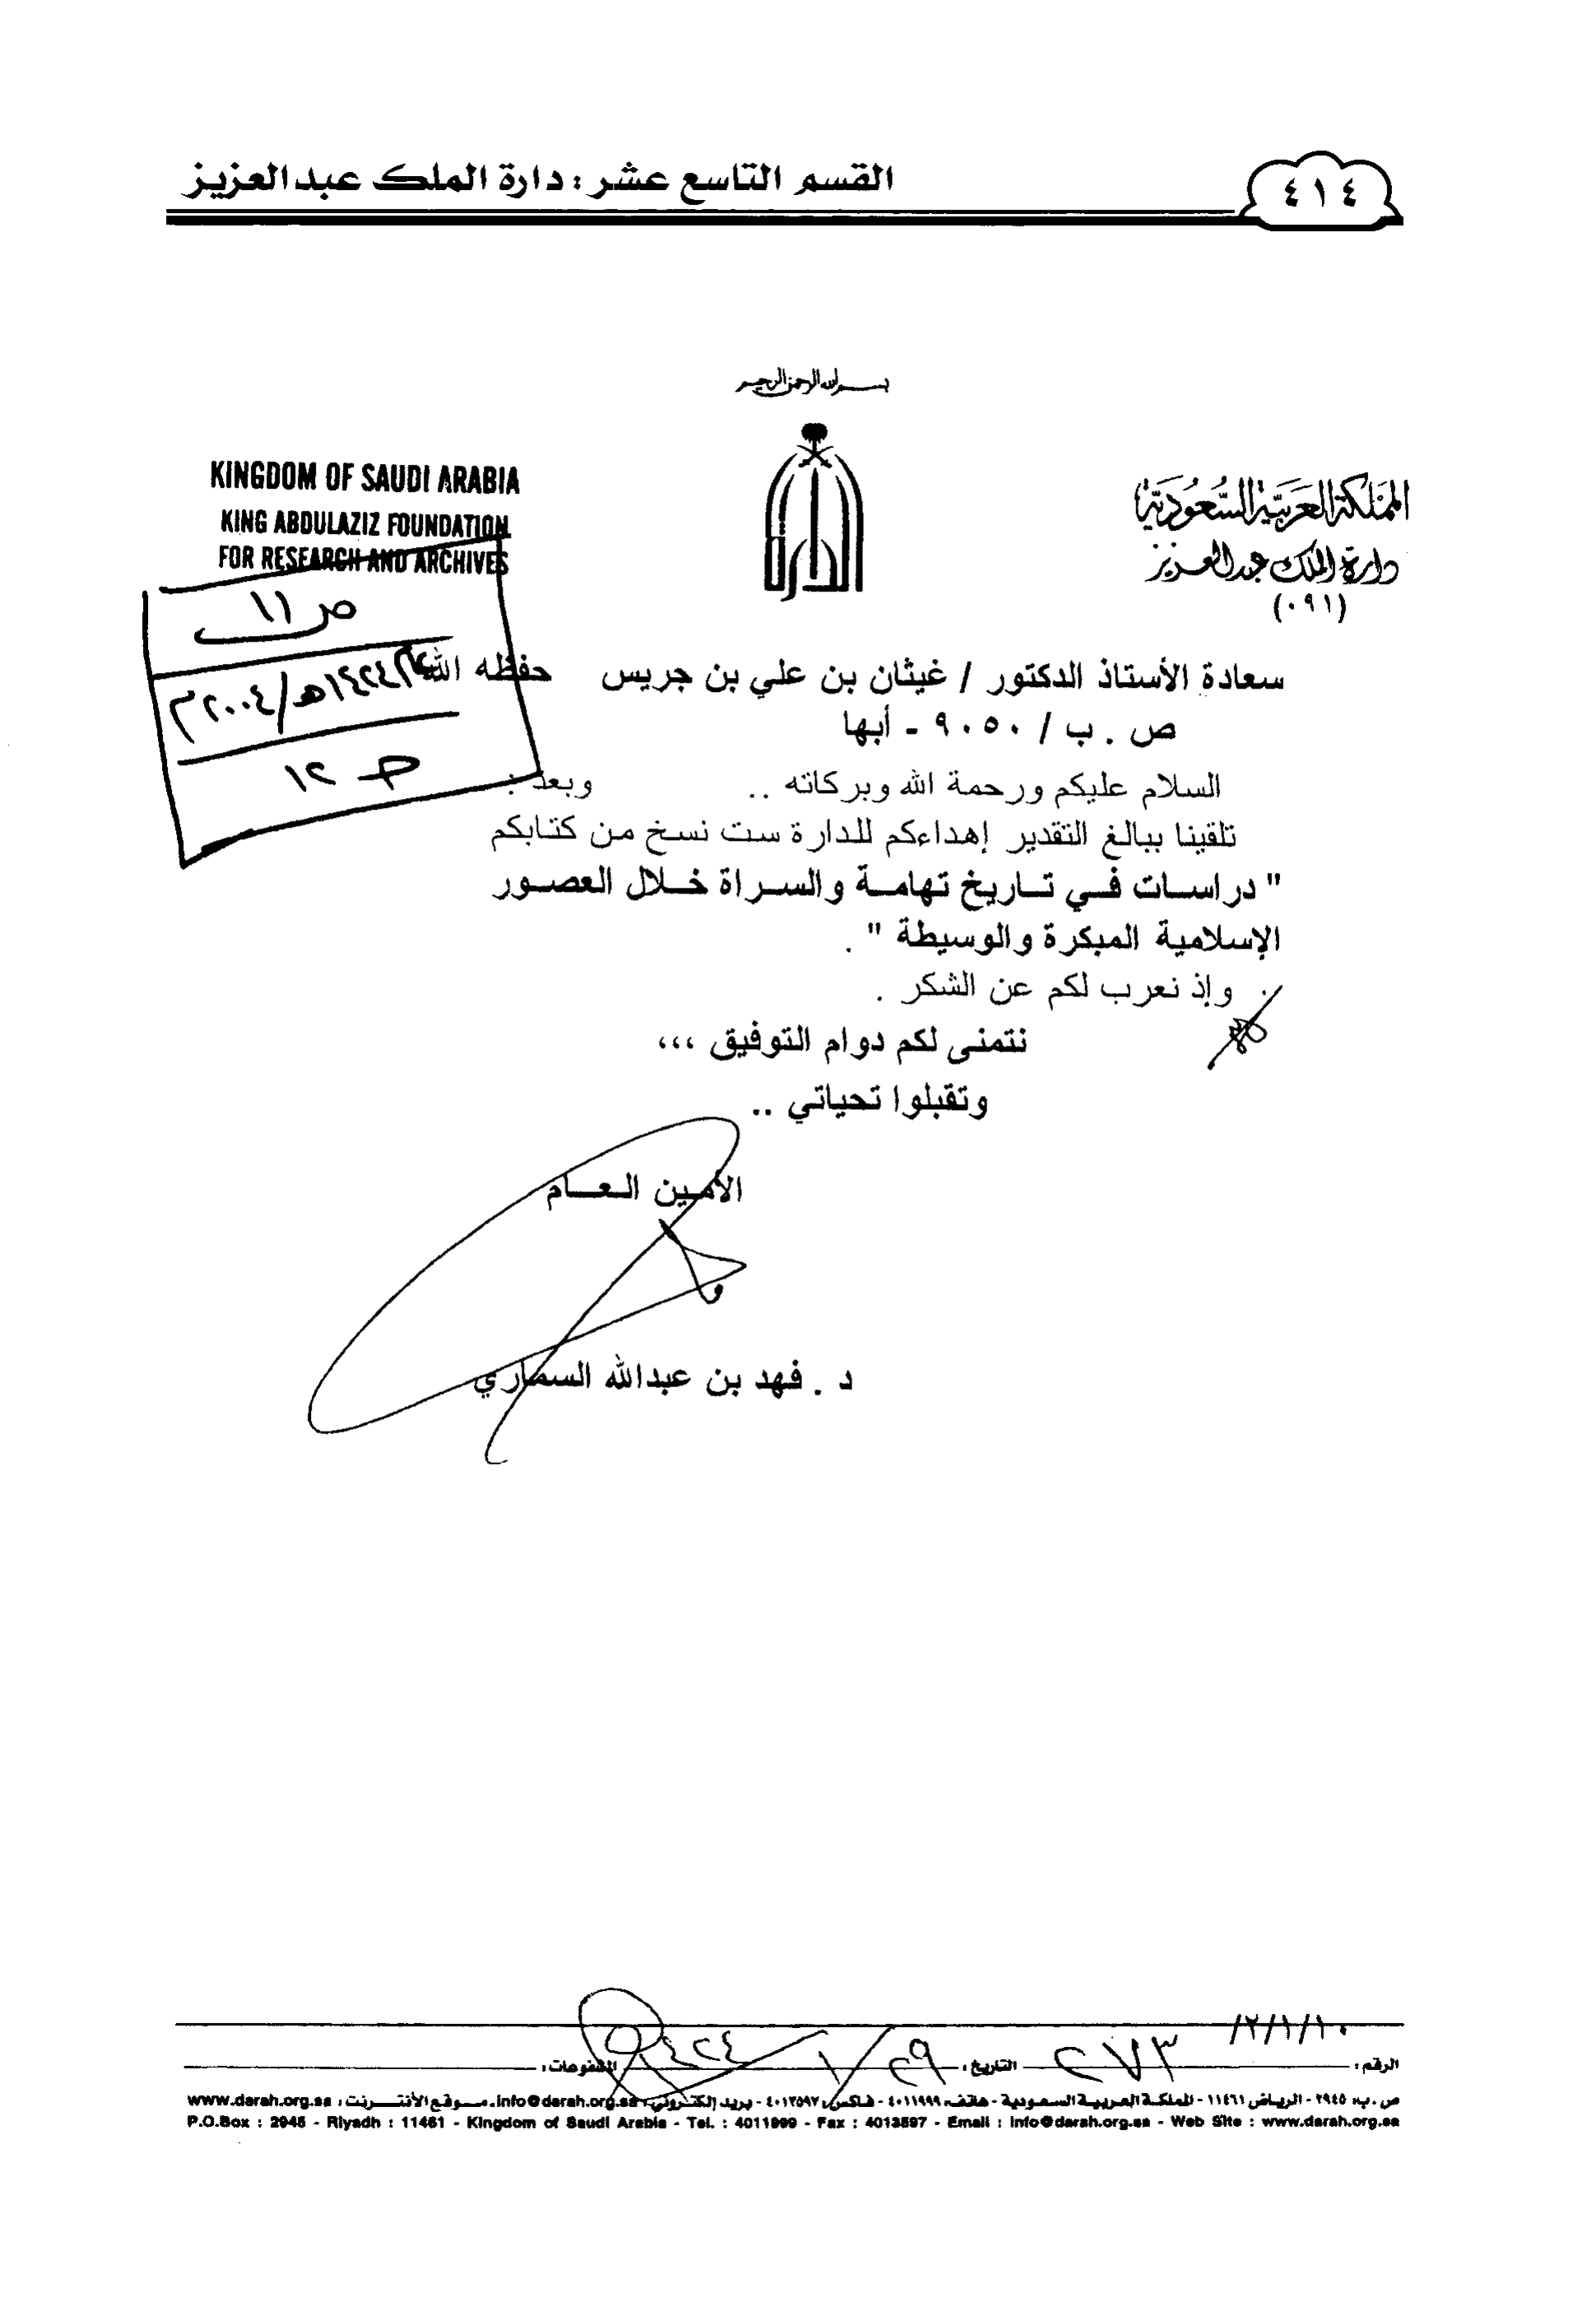 القسم التاسع عشر : دارة الملك عبدالعزيز
٤١٤
بسم الله الرحمن الرحيم
المملكة العربية السعودية
دارة الملك عبدالعزيز
(٠٩١)
KINGDOM OF SAUDI ARABIA
KING ABDULAZIZ FOUNDATION
FOR RESEARCH AND ARCHIVES
ص ١١
١٤٢٤هـ/٢٠٠٤م
ج ١٢
سعادة الأستاذ الدكتور / غيثان بن علي بن جريس حفظه الله
ص . ب / ٩٠٥٠ - أبها
السلام عليكم ورحمة الله وبركاته .. وبعد :
تلقينا ببالغ التقدير إهداءكم للدارة ست نسخ من كتابكم
" دراسات في تاريخ تهامة والسراة خلال العصور
الإسلامية المبكرة والوسيطة " .
وإذ نعرب لكم عن الشكر .
نتمنى لكم دوام التوفيق ،،،
وتقبلوا تحياتي ..
الأمين العام
د . فهد بن عبدالله السماري
/٢/١/١٠
الرقم : ٢٧٣ التاريخ : ٢٩/١/١٤٢٤ المشفوعات :
ص . ب، ٢٩٤٥ - الرياض، ١١٤٦١ - المملكة العربية السعودية - هاتف، ٤٠١١٩٩٩ - فاكس، ٤٠١٣٥٩٧ - بريد إلكتروني، info@darah.org.sa - موقع الأنترنت، www.darah.org.sa
P.O.Box : 2945 - Riyadh : 11461 - Kingdom of Saudi Arabia - Tel. : 4011999 - Fax : 4013597 - Email : info@darah.org.sa - Web Site : www.darah.org.sa